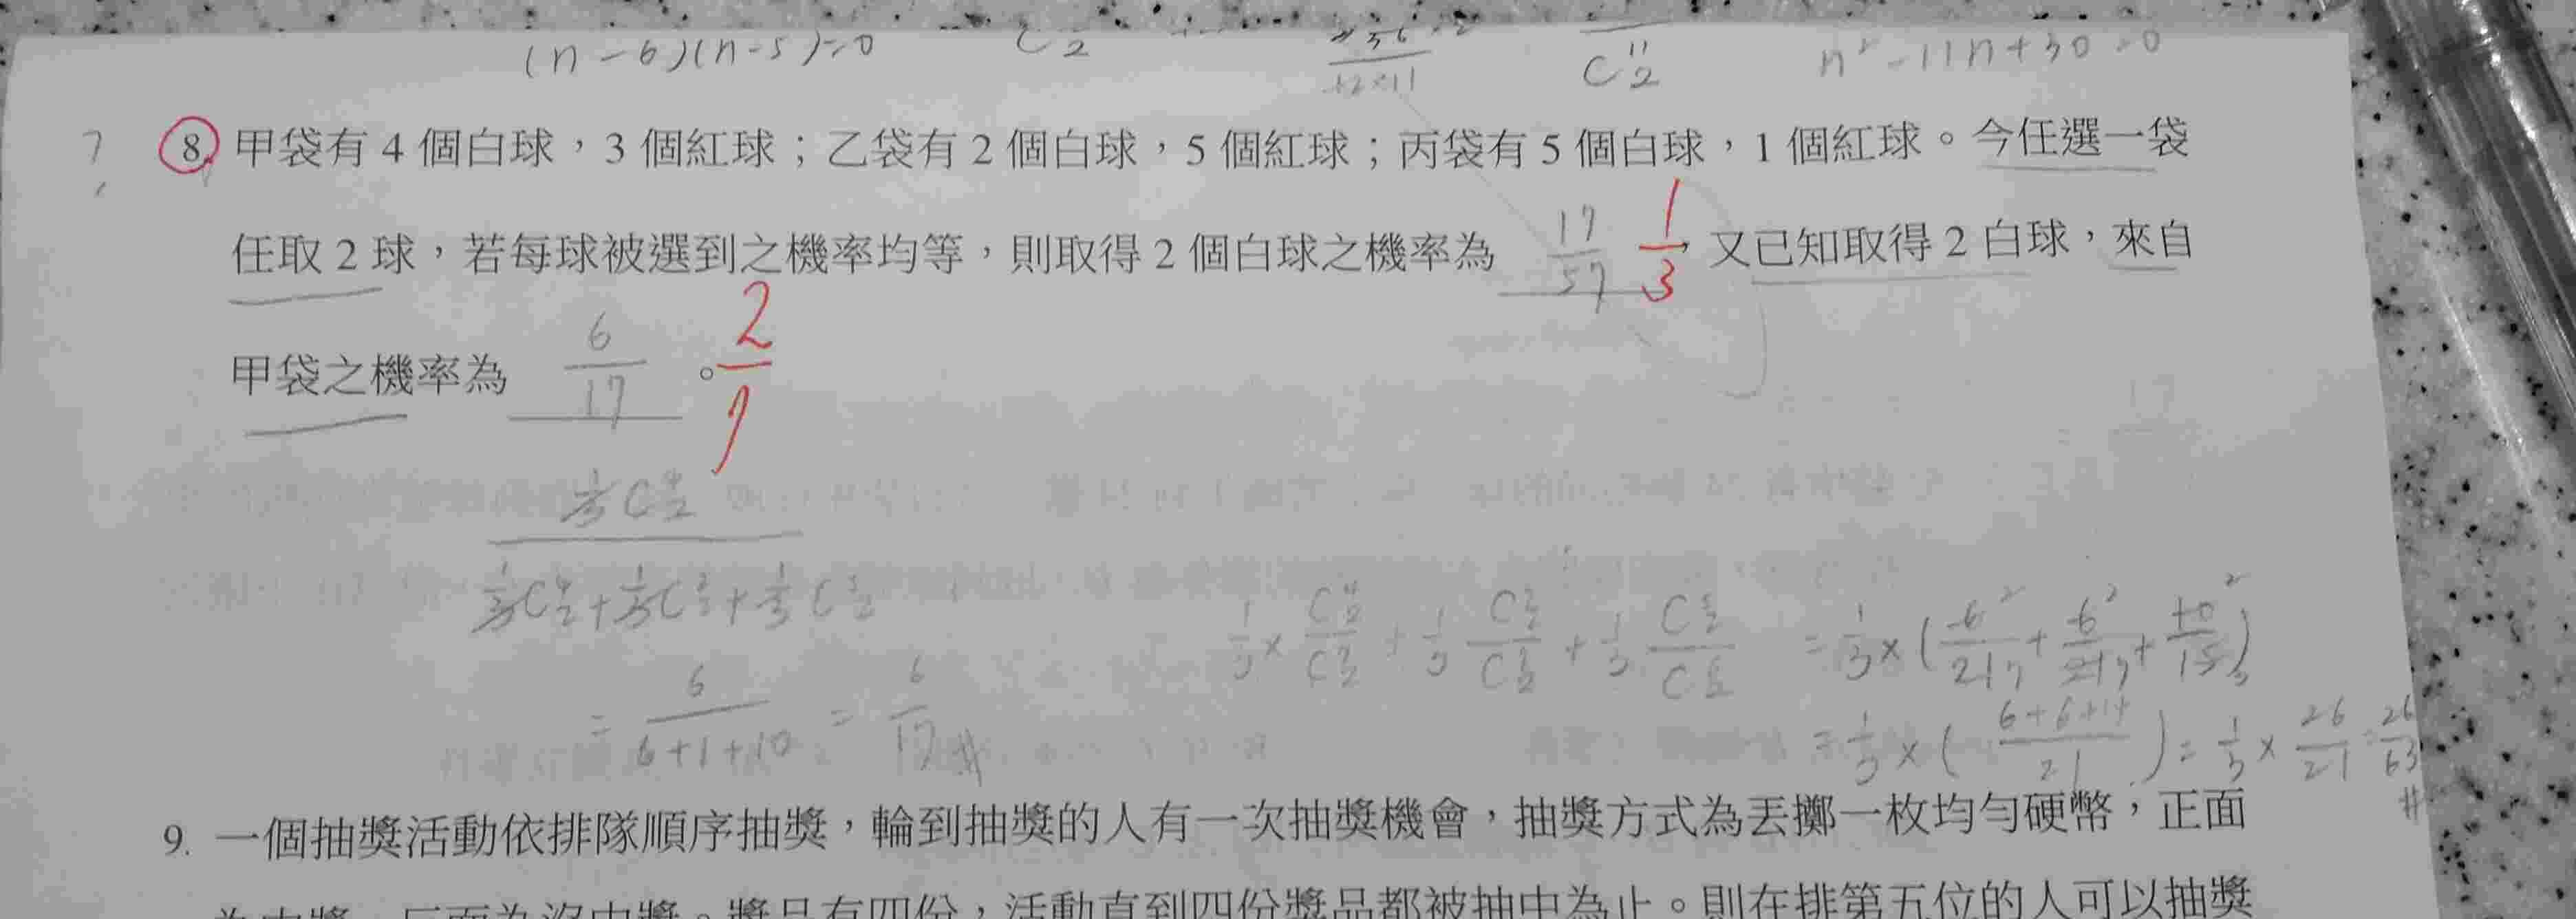 (n-6)(n-5)=0
C 2
36
12×11
C 11 2
n²-11n+30=0
?
8. 甲袋有 4 個白球，3 個紅球；乙袋有 2 個白球，5 個紅球；丙袋有 5 個白球，1 個紅球。今任選一袋
任取 2 球，若每球被選到之機率均等，則取得 2 個白球之機率為 17/57 1/3，又已知取得 2 白球，來自
甲袋之機率為 6/17 。2/7
1/3 C 4 2
1/3 C 4 2 + 1/3 C 2 2 + 1/3 C 5 2
= 6/(6+1+10) = 6/17 #
1/3 × C 4 2 / C 7 2 + 1/3 C 2 2 / C 7 2 + 1/3 C 5 2 / C 6 2 = 1/3 × (6 2/21 7 + 6 2/21 7 + 10 2/15 3)
= 1/3 × (6+6+14/21) = 1/3 × 26/21 = 26/63 #
9. 一個抽獎活動依排隊順序抽獎，輪到抽獎的人有一次抽獎機會，抽獎方式為丟擲一枚均勻硬幣，正面
為中獎，反面為沒中獎。獎品有四份，活動直到四份獎品都被抽中為止。則在排第五位的人可以抽獎